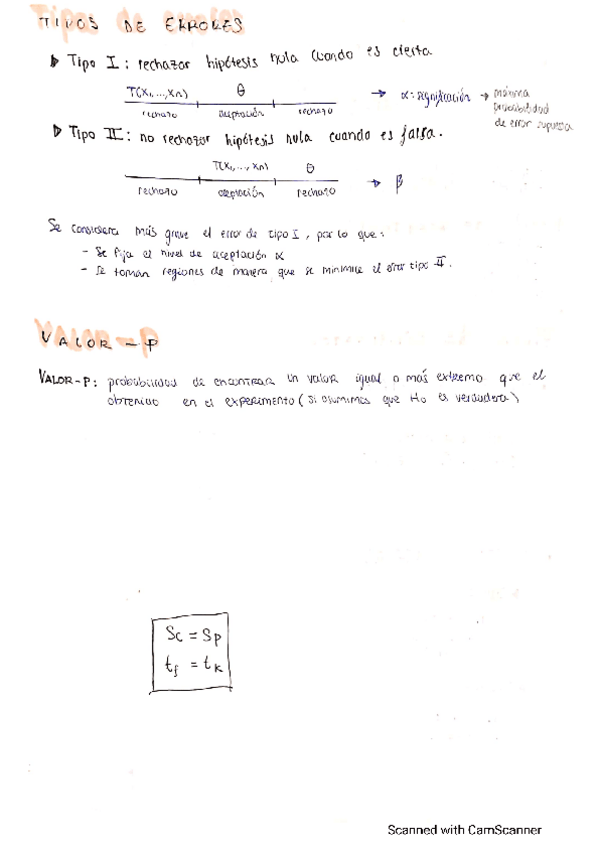 TIPOS DE ERRORES
▶ Tipo I: rechazar hipótesis nula cuando es cierta
T(X1,...,Xn) θ
rechazo aceptación rechazo
→ α: significación → máxima probabilidad de error supuesta
▶ Tipo II: no rechazar hipótesis nula cuando es falsa.
T(X1,...,Xn) θ
rechazo aceptación rechazo
→ β
Se considera más grave el error de tipo I, por lo que:
- Se fija el nivel de aceptación α
- Se toman regiones de manera que se minimice el error tipo II.
VALOR-P
VALOR-P: probabilidad de encontrar un valor igual o más extremo que el
obtenido en el experimento (si asumimos que H0 es verdadera)
Sc = Sp
tf = tk
Scanned with CamScanner